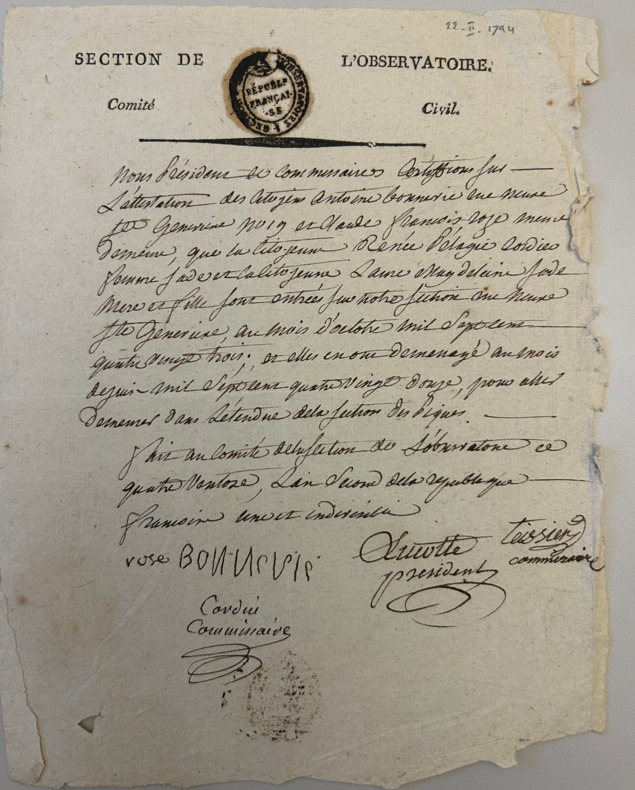 22-II-1794
SECTION DE L'OBSERVATOIRE.
RÉPUBLI
FRANÇAI-
SE
Comité Civil.
Nous Président et commissaires Certiffions sur
L'attestation des Citoyens Antoine bonnerie rue neuve
Ste Genevieve No 19 et Claude françois roze meme
demeure, que la Citoyenne Renée Pélagie Cordier
femme Sade et la Citoyenne Laure Magdelaine Sade
Mere et fille sont entrées sur notre section rue neuve
Ste Genevieve, au mois d'octobre mil Sept cent
quatre vingt trois; et elles en ont demenagé au mois
de juin mil Sept cent quatre vingt douze, pour aller
demeurer dans L'étendue de la section des Piques.
fait au Comité de la Section de L'observatoire ce
quatre Ventose, L'an Second de la republique
françoise une et indivisible
rose BONNERIE
president
Tessier
commissaire
Cordié
Commissaire